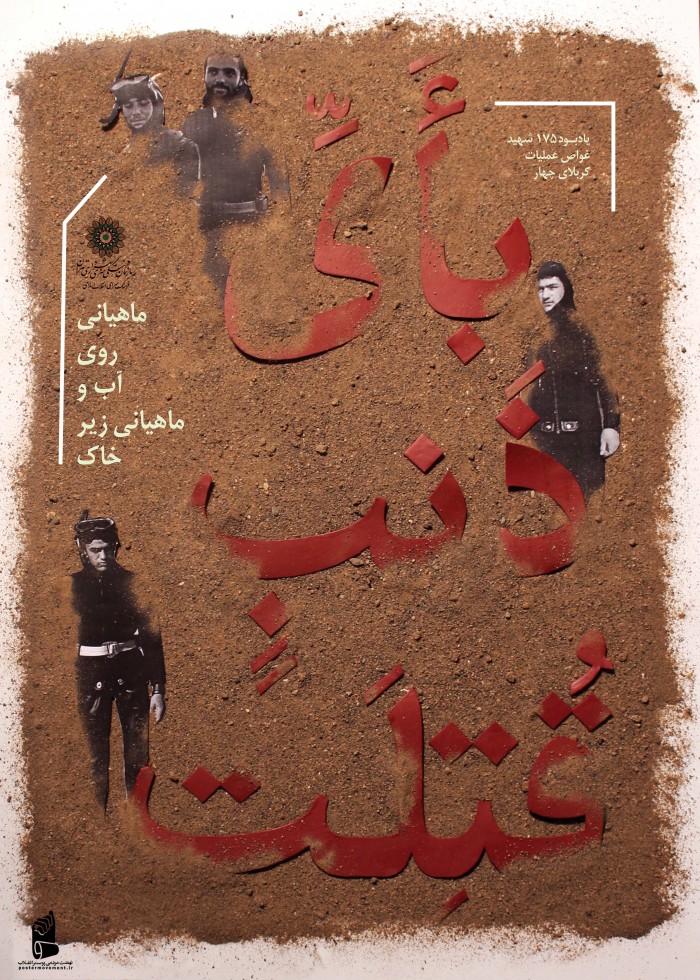 یادبود ۱۷۵ شهید
غواص عملیات
کربلای چهار
بأَیِّ
ذَنبٍ
قُتِلَت
ماهیانی
روی
آب و
ماهیانی زیر
خاک
نهضت مردمی پوستر انقلاب
postermovement.ir